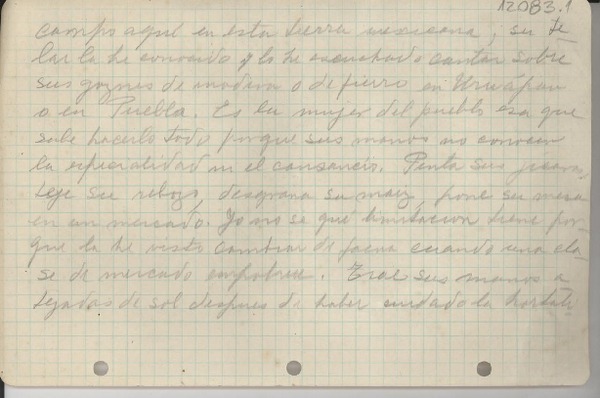 12083.1
campo aquí en esta tierra mexicana, su te-
lar la he conocido y lo he escuchado cantar sobre
sus goznes de madera o de fierro en Uruapan
o en Puebla. Es la mujer del pueblo esa que
sabe hacerlo todo porque sus manos no conocen
la especialidad ni el cansancio. Pinta sus jícaras,
teje su rebozo, desgrana su maíz, pone su mesa
en un mercado. Yo no se qué limitacion tiene por-
que la he visto cambiar de faena cuando una cla-
se de mercado empobrece. Trae sus manos a
tezadas de sol despues de haber cuidado la hortali